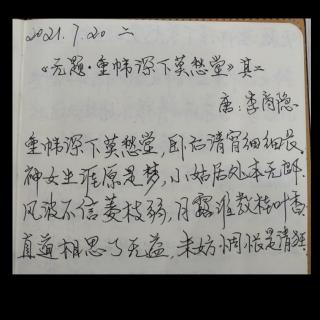 2021.7.20 二
《无题·重帏深下莫愁堂》其二
唐:李商隐
重帏深下莫愁堂,卧后清宵细细长.
神女生涯原是梦,小姑居处本无郎.
风波不信菱枝弱,月露谁教桂叶香.
直道相思了无益,未妨惆怅是清狂.